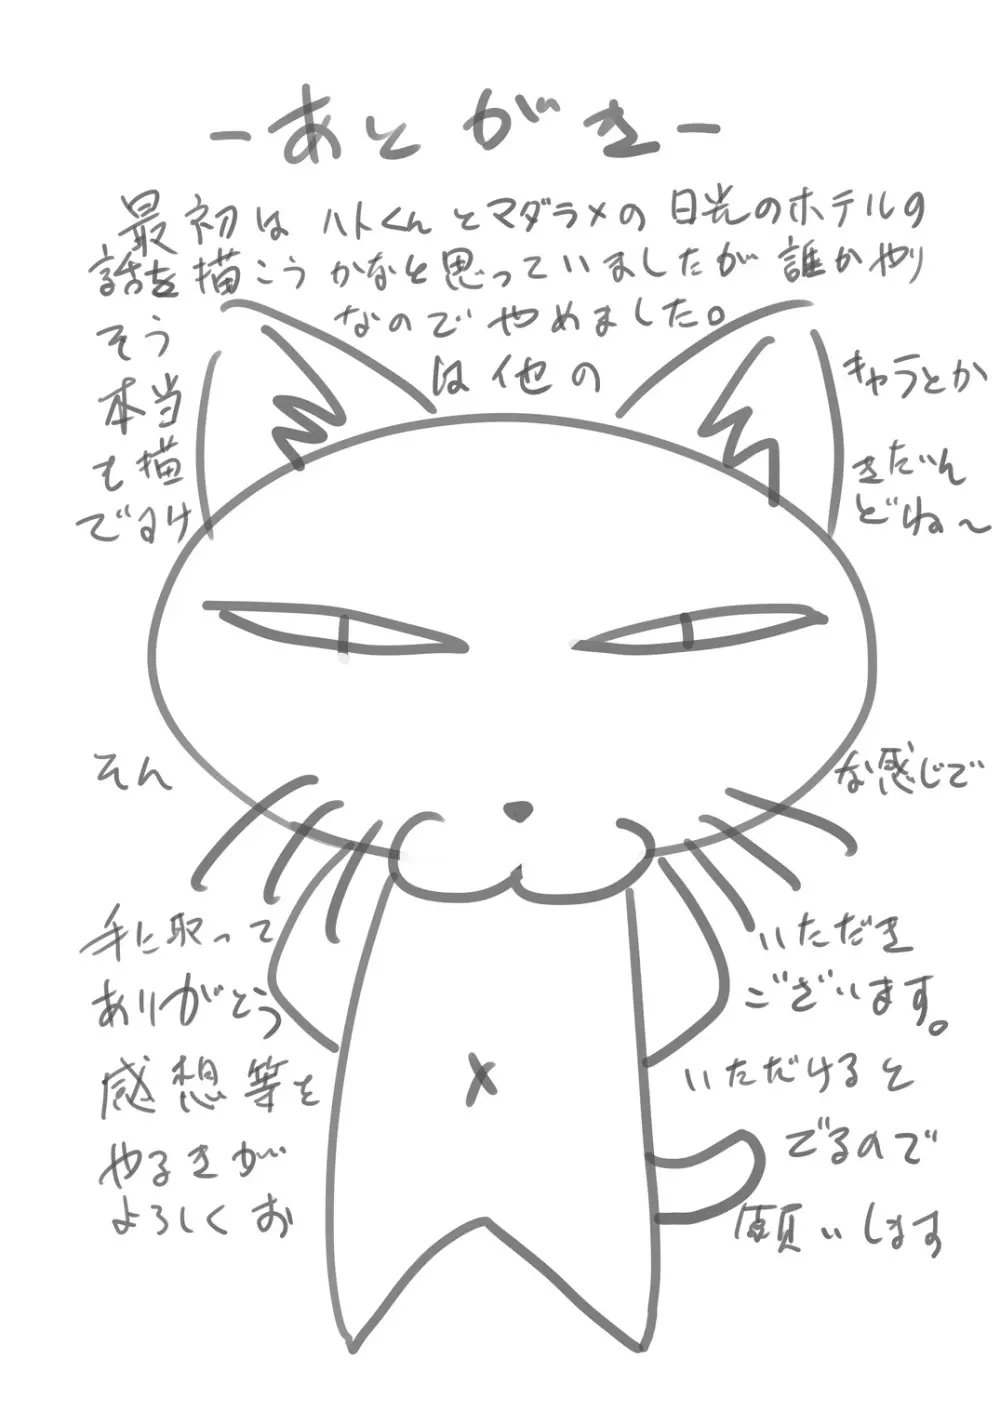 -あとがき-
最初はハトくんとマダラメの日光のホテルの
話を描こうかなと思っていましたが誰かやり
そうなのでやめました。
本当は他のキャラとか
も描きだいん
でるけどね～
そんな感じで
手に取っていただき
ありがとうございます。
感想等をいただけると
やるきがでるので
よろしくお願いします